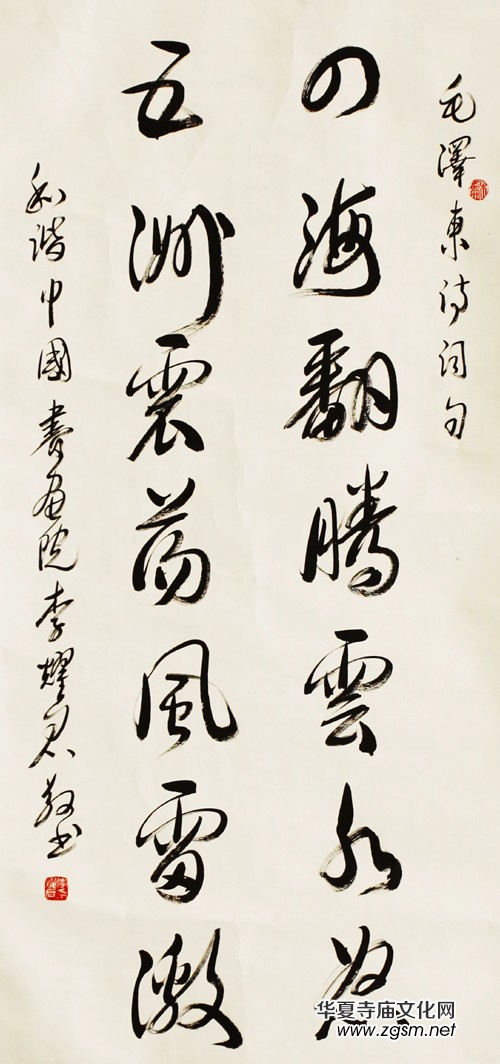 毛澤東诗词句
四海翻腾雲水怒
五洲震荡風雷激
和谐中國書画院李耀君敬书
华夏寺庙文化网
www.zgsm.net